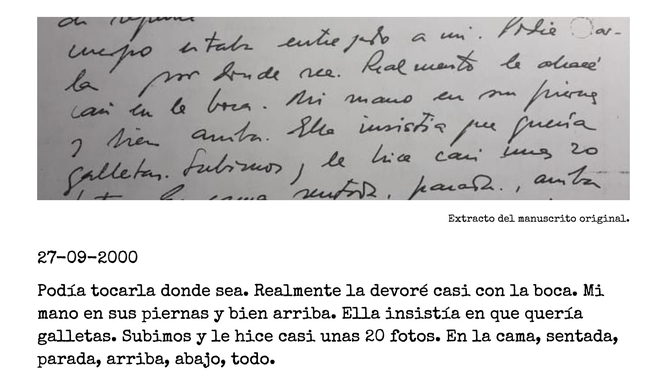 cuerpo estaba entregado a mi. Podía
la por donde sea. Realmente la devoré
casi en la boca. Mi mano en sus piernas
y bien arriba. Ella insistía que quería
galletas. Subimos y le hice casi unas 20
cama, sentada, parada, arriba
Extracto del manuscrito original.
27-09-2000
Podía tocarla donde sea. Realmente la devoré casi con la boca. Mi
mano en sus piernas y bien arriba. Ella insistía en que quería
galletas. Subimos y le hice casi unas 20 fotos. En la cama, sentada,
parada, arriba, abajo, todo.